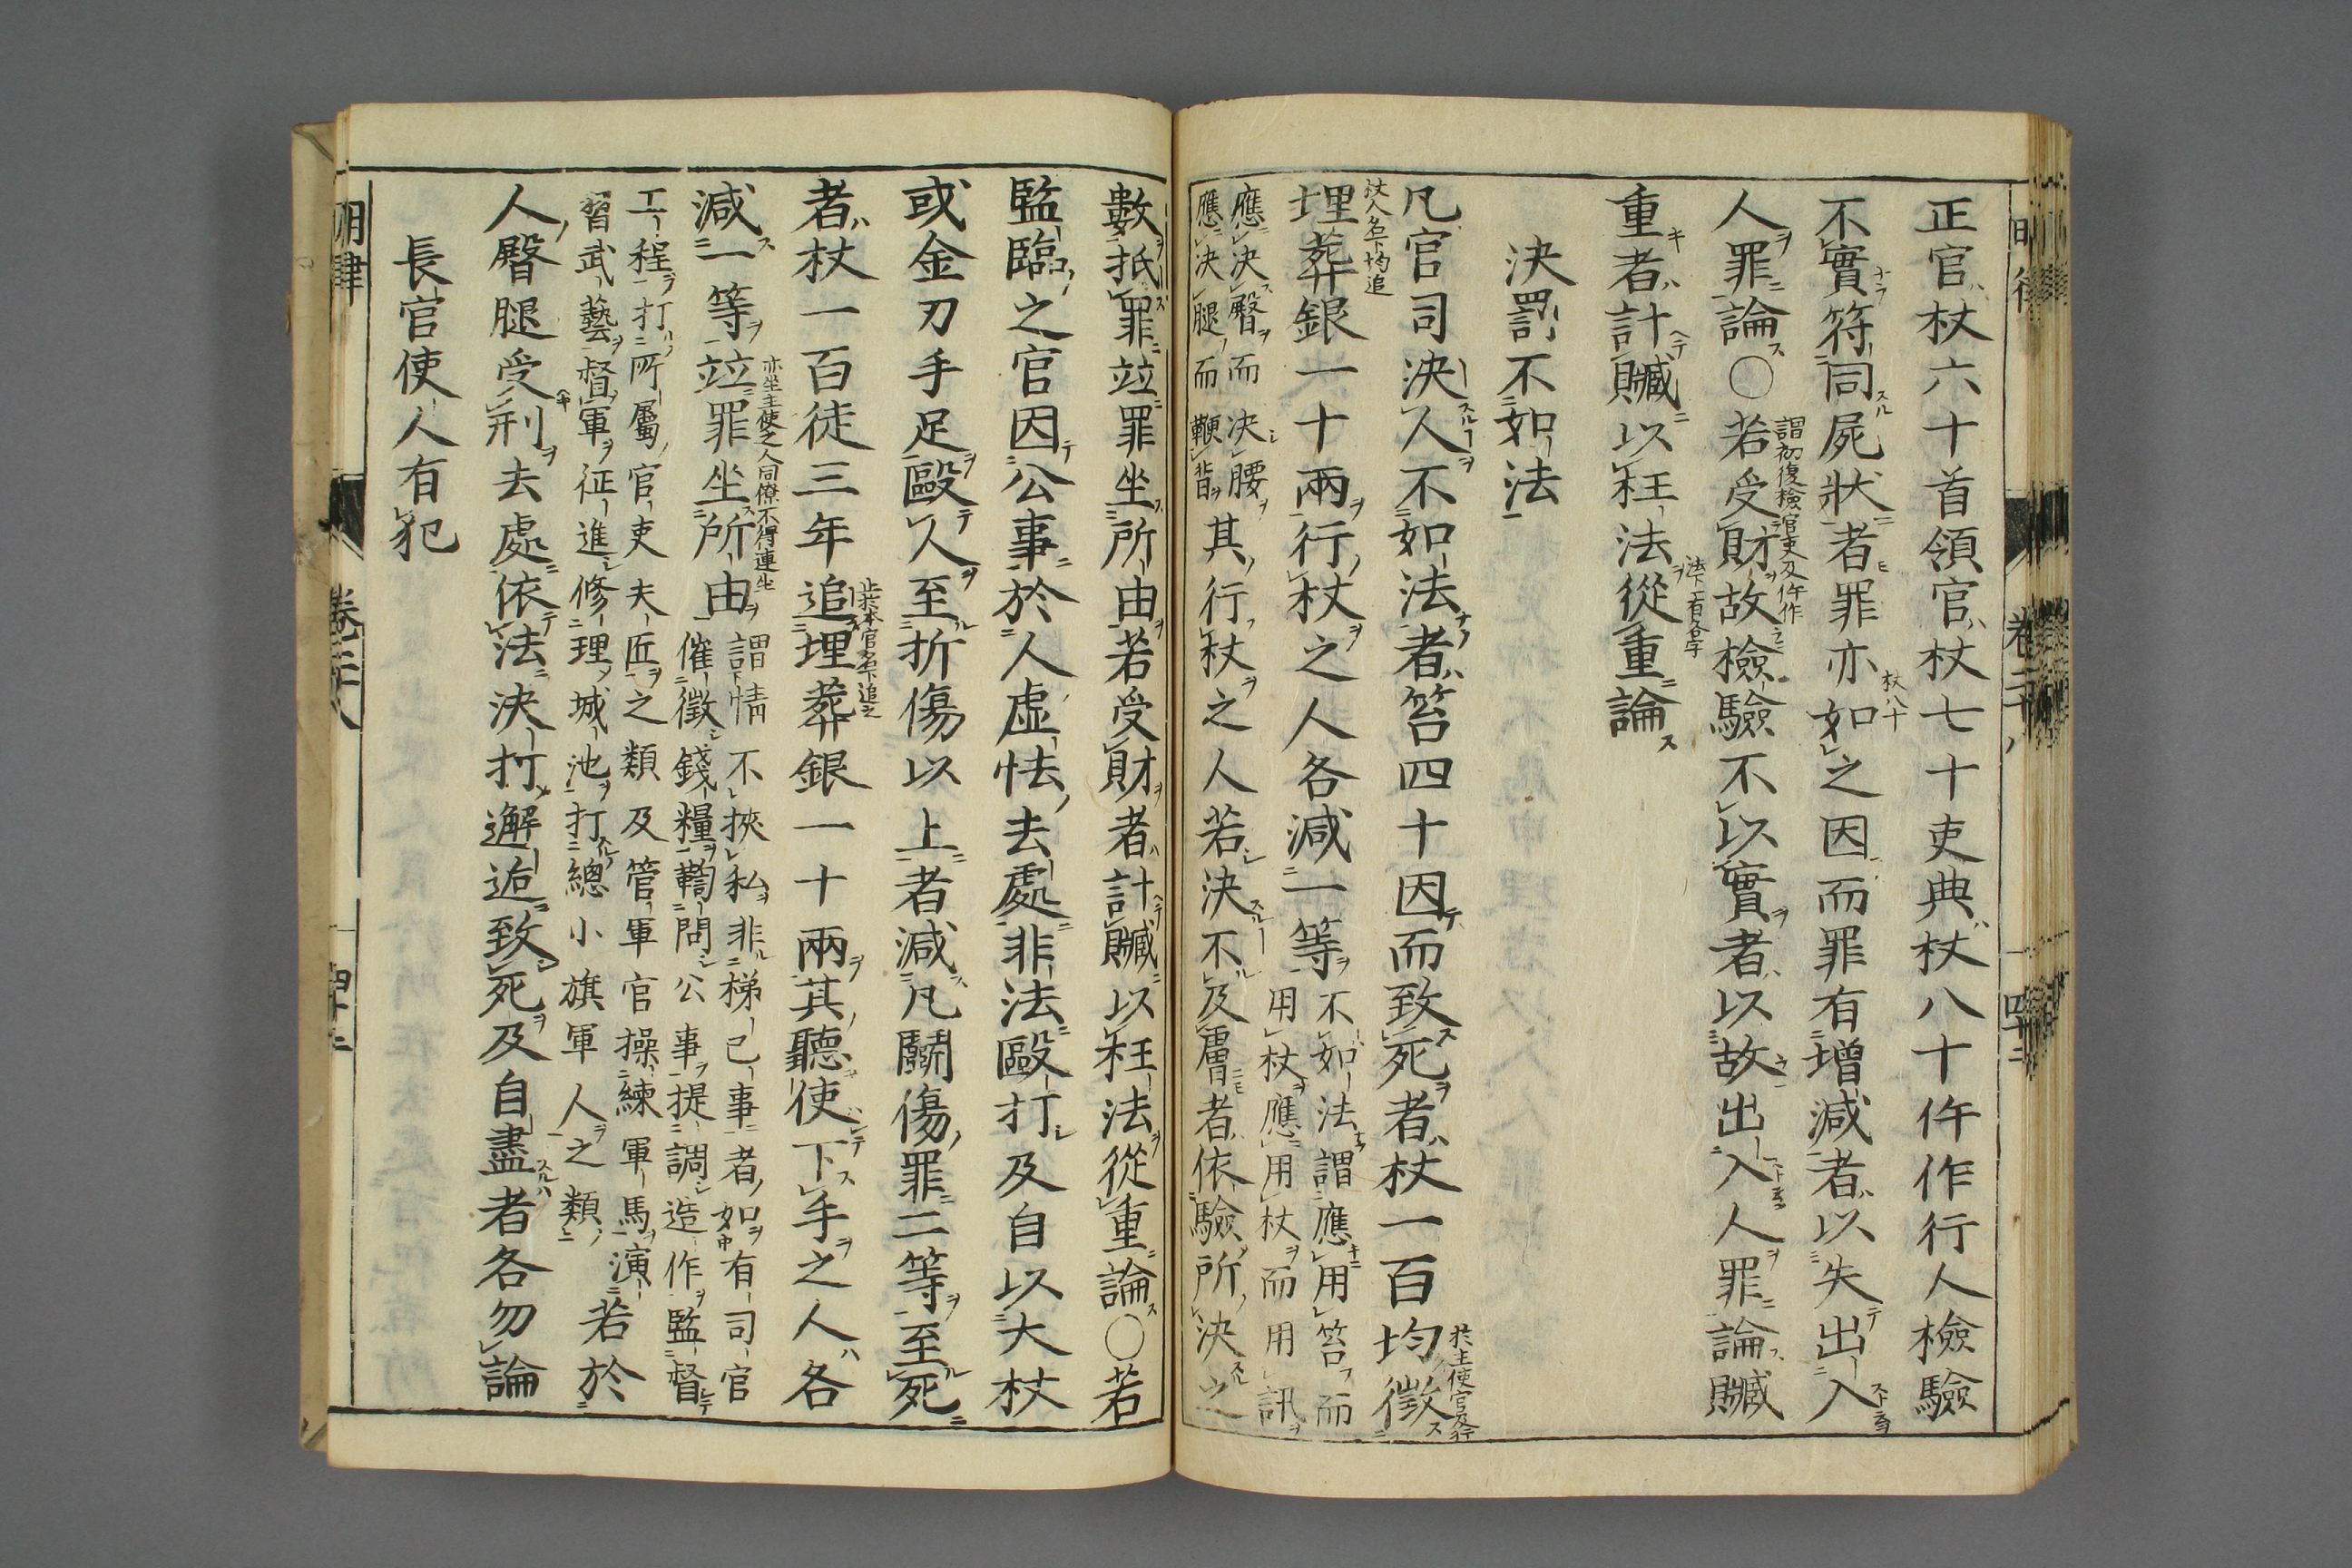 正官杖六十首領官杖七十吏典杖八十仵作行人檢驗
不實符同屍狀者罪亦如之因而罪有增減者以失出入
杖八十
人罪論○若受財故檢驗不以實者以故出入人罪論贓
謂初復檢官吏及仵作
重者計贓以枉法從重論
法下有各字
決罰不如法
凡官司決人不如法者笞四十因而致死者杖一百均徵
於主使官及行
杖人名下均追
埋葬銀一十兩行杖之人各減一等
不如法謂應用笞而
用杖應用杖而用訊
應決臀而決腰
應決腿而鞭背
其行杖之人若決不及膚者依驗所決之
數抵罪竝罪坐所由若受財者計贓以枉法從重論○若
監臨之官因公事於人虛怯去處非法毆打及自以大杖
或金刃手足毆人至折傷以上者減凡鬭傷罪二等至死
者杖一百徒三年追埋葬銀一十兩其聽使下手之人各
止於本官名下追之
減一等竝罪坐所由
亦坐主使之人同僚不得連坐
謂情不挾私非梯己事者如有司官
催徵錢糧鞫問公事提調造作監督
工程打所屬官吏夫匠之類及管軍官操練軍馬演
習武藝督軍征進修理城池打總小旗軍人之類
若於
人臀腿受刑去處依法決打邂逅致死及自盡者各勿論
長官使人有犯
明律
卷二十八
四十二